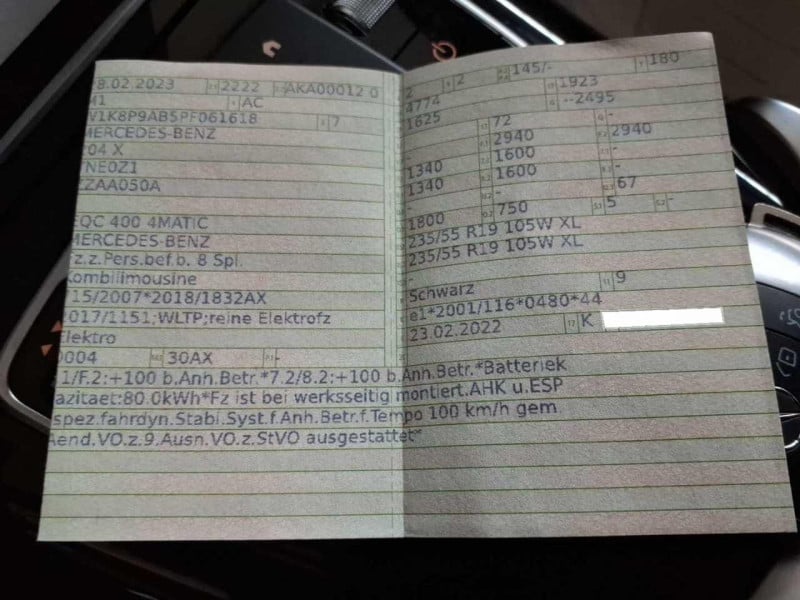 8.02.2023 2222 AKA00012 0
M1 AC
W1K8P9AB5PF061618 7
MERCEDES-BENZ
204 X
YNE0Z1
ZZAA050A
EQC 400 4MATIC
MERCEDES-BENZ
Fz.z.Pers.bef.b. 8 Spl.
Kombilimousine
715/2007*2018/1832AX
2017/1151;WLTP;reine Elektrofz
Elektro
0004 30AX -
2 2 145/- 180
4774 1923
1625 --2495
- 72 -
- 2940 2940
1340 1600 -
1340 1600 -
- - 67
1800 750 5 -
235/55 R19 105W XL
235/55 R19 105W XL
Schwarz 9
e1*2001/116*0480*44
23.02.2022 K
.1/F.2:+100 b.Anh.Betr.*7.2/8.2:+100 b.Anh.Betr.*Batteriek
apazitaet:80.0kWh*Fz ist bei werksseitig montiert.AHK u.ESP
spez.fahrdyn.Stabi.Syst.f.Anh.Betr.f.Tempo 100 km/h gem.
Aend.VO.z.9.Ausn.VO.z.StVO ausgestattet*